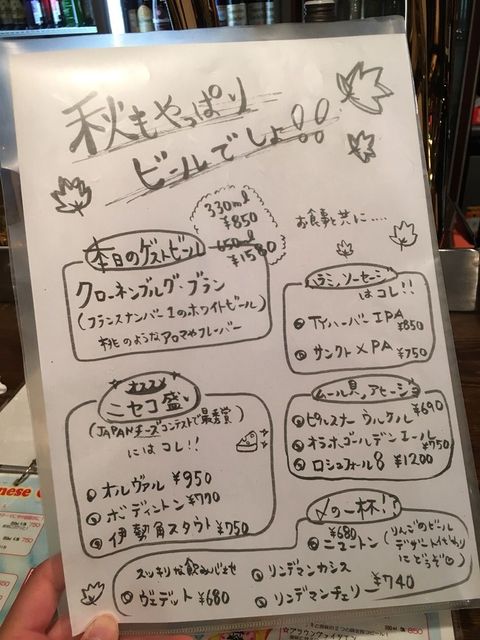 秋もやっぱり
ビールでしょ!!
330ml
¥850
650ml
¥1580
本日のゲストビール
クローネンブルグ・ブラン
(フランスナンバー1のホワイトビール)
桃のようなアロマやフレーバー
お食事と共に....
ラミ,ソーセージ
はコレ!!
TYハーバーIPA ¥850
サンクトXPA ¥750
オススメ
ニセコ盛
(JAPANチーズコンテストで最秀賞)
にはコレ!!
オルヴァル ¥950
ボディントン ¥770
伊勢角スタウト ¥750
ムール貝,アヒージョ
ピルスナーウルケル ¥690
オラホゴールデンエール ¥750
ロシュフォール8 ¥1200
〆の一杯!!
¥680
ニュートン (りんごのビール
デザートがわり
にどうぞ♡)
スッキリな飲み心地
ヴェデット ¥680
リンデマンカシス
リンデマンチェリー ¥740